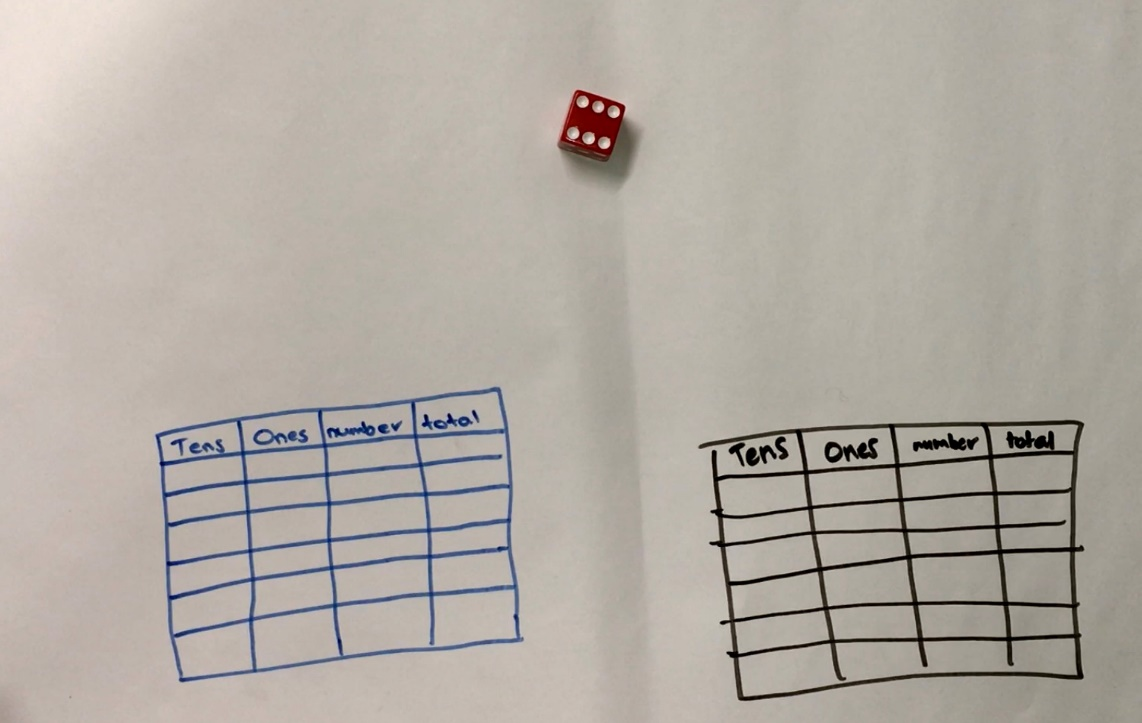 Tens Ones number total
Tens Ones number total